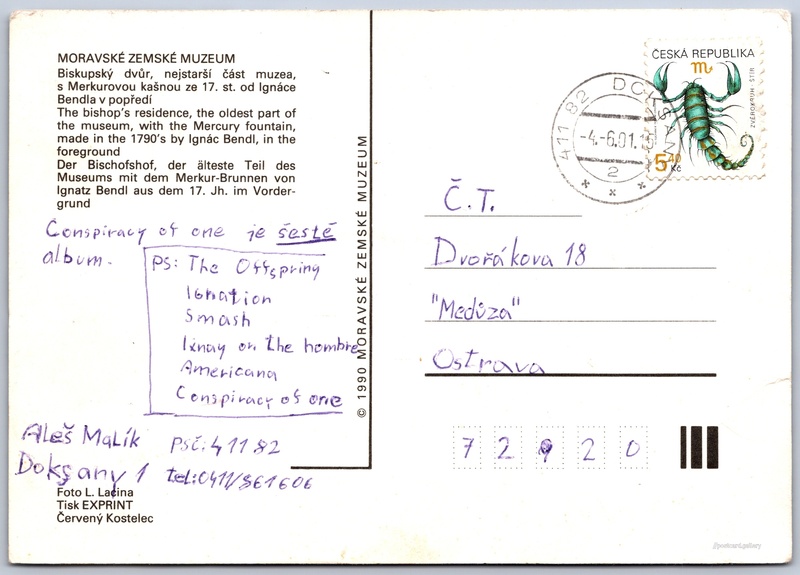 MORAVSKÉ ZEMSKÉ MUZEUM
Biskupský dvůr, nejstarší část muzea,
s Merkurovou kašnou ze 17. st. od Ignáce
Bendla v popředí
The bishop's residence, the oldest part of
the museum, with the Mercury fountain,
made in the 1790's by Ignác Bendl, in the
foreground
Der Bischofshof, der älteste Teil des
Museums mit dem Merkur-Brunnen von
Ignatz Bendl aus dem 17. Jh. im Vorder-
grund
Conspiracy of one je šesté
album.
PS: The Offspring
Ignation
Smash
Ixnay on the hombre
Americana
Conspiracy of one
Aleš Malík PSČ: 411 82
Doksany 1 tel: 0411/861606
Foto L. Lacina
Tisk EXPRINT
Červený Kostelec
© 1990 MORAVSKÉ ZEMSKÉ MUZEUM
ČESKÁ REPUBLIKA
ZVĚROKRUH - ŠTÍR
5,40 Kč
411 82
-4.-6.01.
2
Č.T.
Dvořákova 18
"Medůza"
Ostrava
7 2 9 2 0
//postcard.gallery